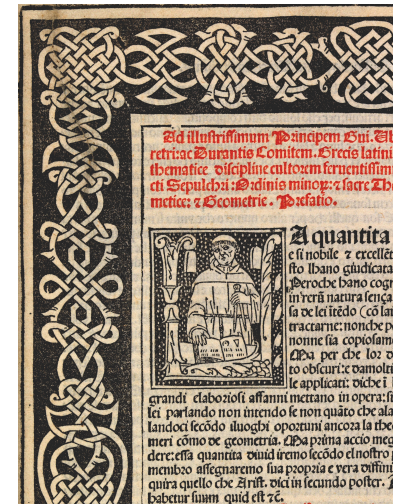 Ad illustrissimum Principem Gui. Ub
retri: ac Durantis Comitem. Grecis latini
thematice discipline cultorem ferventissim
cti Sepulchri: Ordinis minor: ⁊ sacre The
metice: ⁊ Geometrie. Prefatio.
A quantita
e si nobile ⁊ excellẽt
sto lhano giudicata
Peroche hano cogn
in rerũ natura sença
sa de lei ĩtẽdo (cõ lar
tractarne: nonche po
nonne sia copiosam
Ma per che loz d
to obscuri: e damolti
le applicati: diche ĩ
grandi elaboriosi affanni mettano in opera: si
lei parlando non intendo se non quãto che ala
landoci secõdo iluoghi oportuni ancora la theo
meri cõmo de geometria. Ma prima accio meg
dere: essa quantita diuid iremo secõdo el nostro p
membro assegnaremo sua propria e vera diffini
quira quello che Arist. dici in secundo poster.
habetur suum quid est ⁊č.